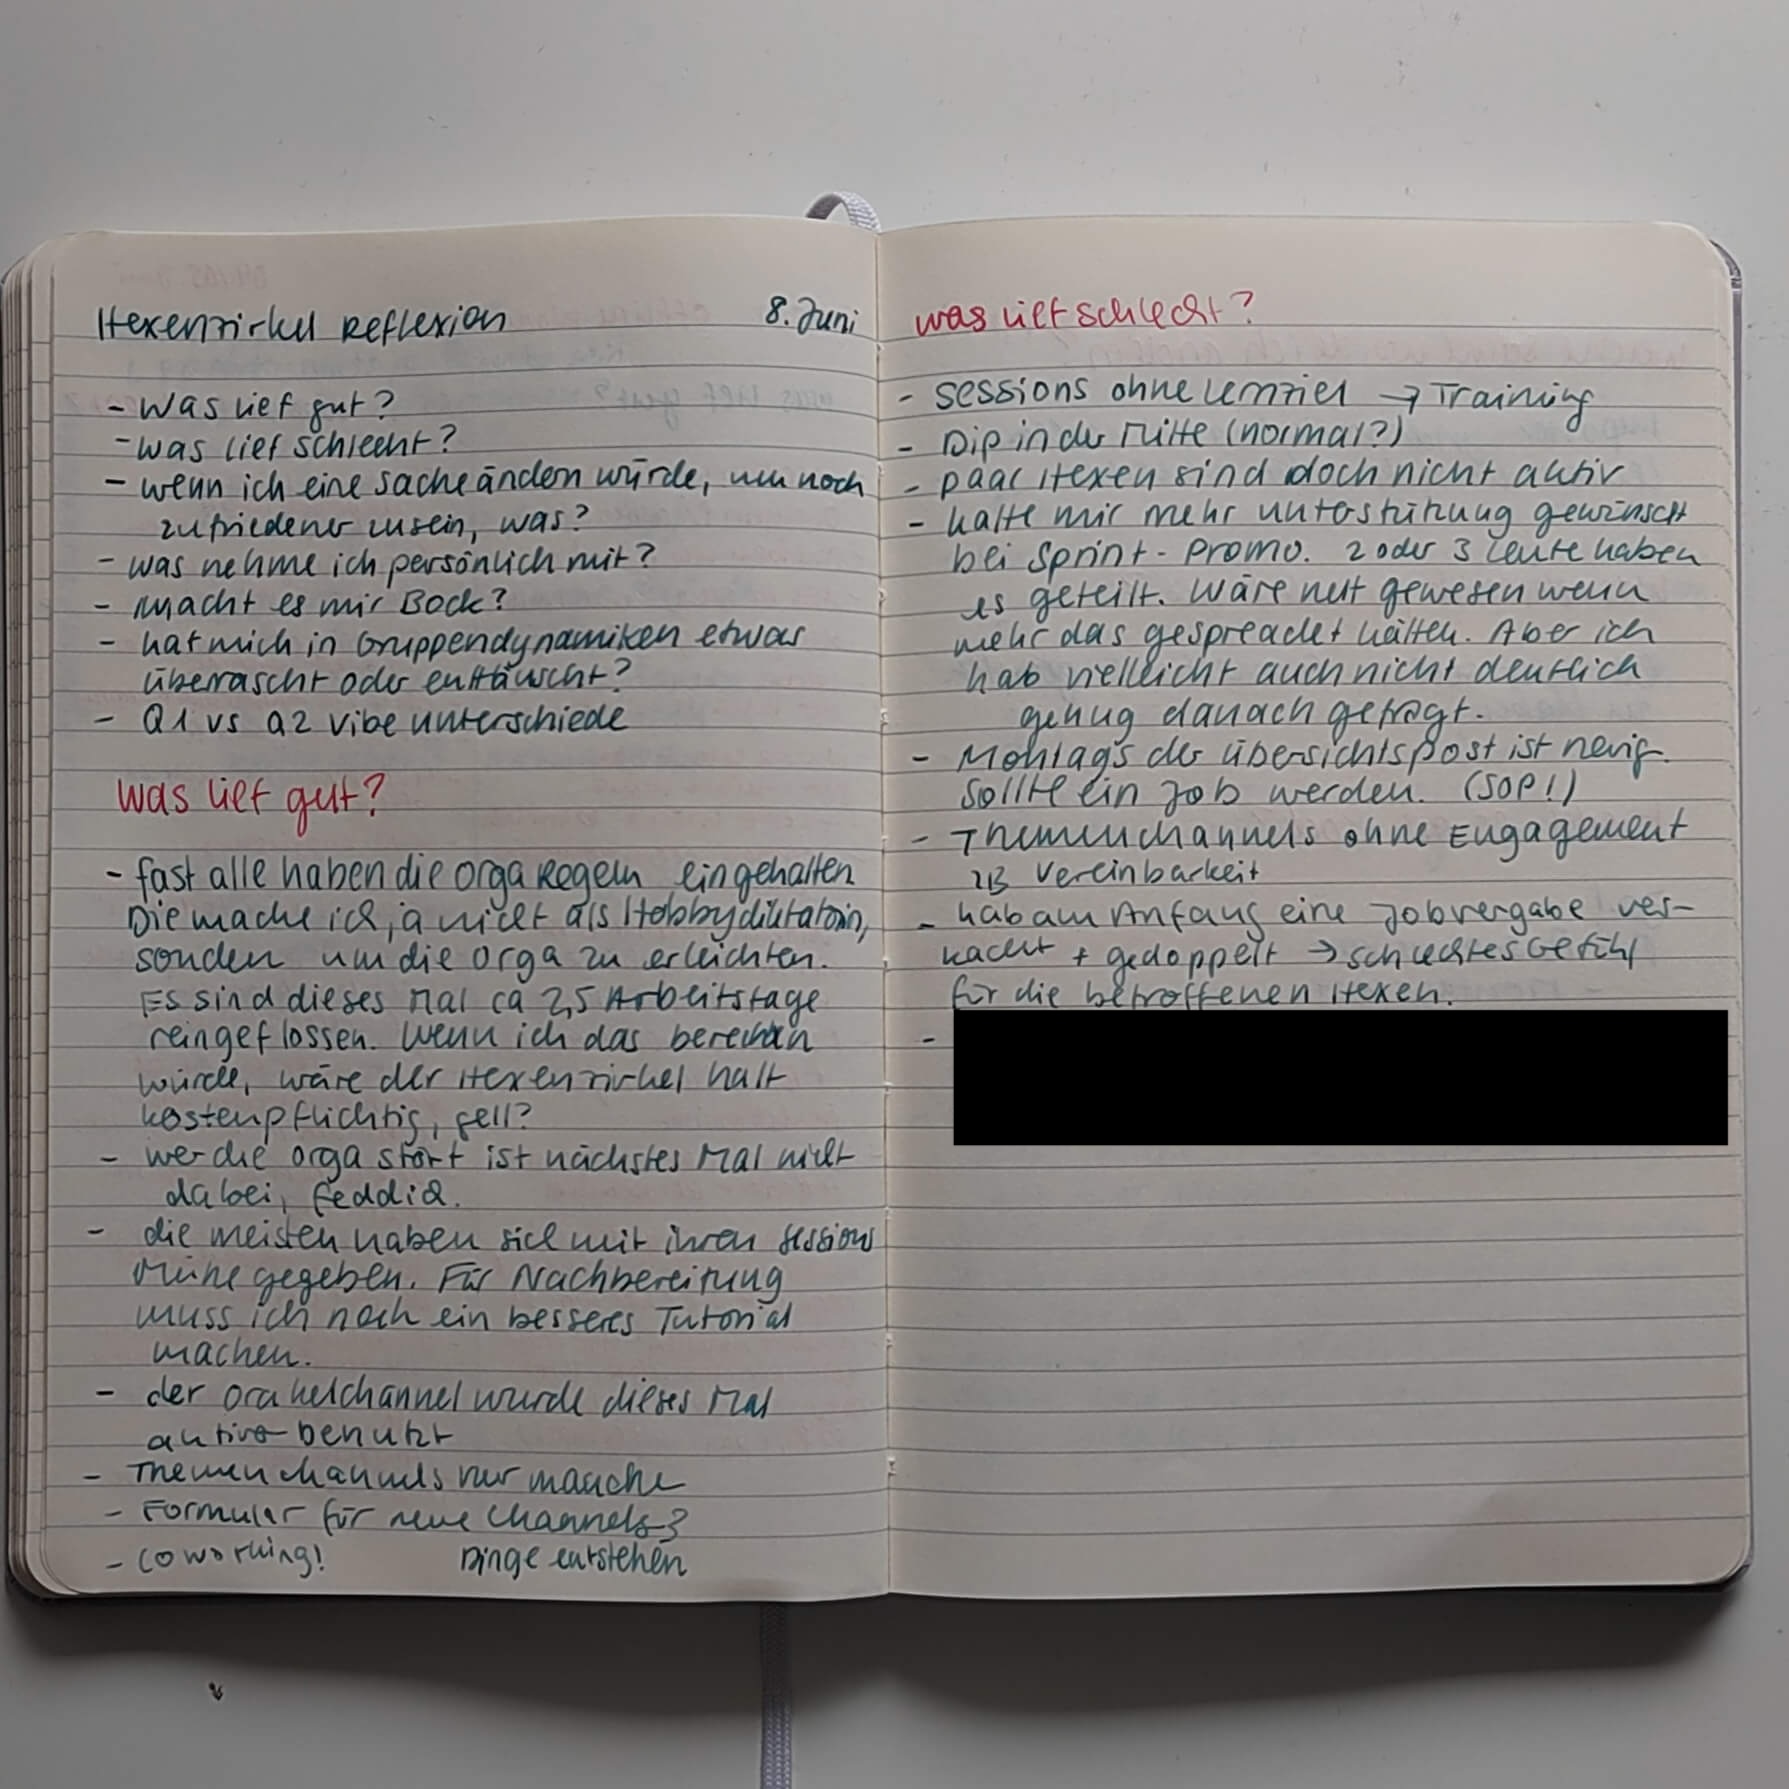 Hexenzirkel Reflexion 8. Juni
- Was lief gut?
- was lief schlecht?
- wenn ich eine sache ändern würde, um noch
zufriedener zu sein, was?
- was nehme ich persönlich mit?
- macht es mir Bock?
- hat mich in Gruppendynamiken etwas
überrascht oder enttäuscht?
- Q1 vs Q2 vibe unterschiede
was lief gut?
- fast alle haben die orga Regeln eingehalten
Die mache ich ja nicht als Hobbydiktatorin,
sondern um die orga zu erleichtern.
Es sind dieses Mal ca 2,5 Arbeitstage
reingeflossen. Wenn ich das berechnen
würde, wäre der Hexenzirkel halt
kostenpflichtig, gell?
- wer die orga stört ist nächstes Mal nicht
dabei, feddich.
- die meisten haben sich mit ihren sessions
Mühe gegeben. Für Nachbereitung
muss ich noch ein besseres Tutorial
machen.
- der orakelchannel wurde dieses Mal
aktiv benutzt
- Themenchannels nur manche
- Formular für neue Channels?
- coworking! Dinge entstehen
was lief schlecht?
- sessions ohne Lernziel → Training
- Dip in der Mitte (normal?)
- paar Hexen sind doch nicht aktiv
- hätte mir mehr unterstützung gewünscht
bei Sprint-Promo. 2 oder 3 Leute haben
es geteilt. Wäre nett gewesen wenn
mehr das gespreadet hätten. Aber ich
hab vielleicht auch nicht deutlich
genug danach gefragt.
- Montags der übersichtspost ist nervig.
sollte ein Job werden. (SOP!)
- Themenchannels ohne Engagement
zB Vereinbarkeit
- hab am Anfang eine Jobvergabe ver-
kackt + gedoppelt → schlechtes Gefühl
für die betroffenen Hexen.
-